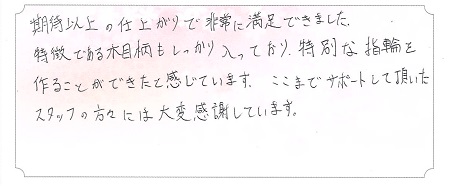 期待以上の仕上がりで非常に満足できました。
特徴である木目柄もしっかり入っており、特別な指輪を
作ることができたと感じています。ここまでサポートして頂いた
スタッフの方々には大変感謝しています。